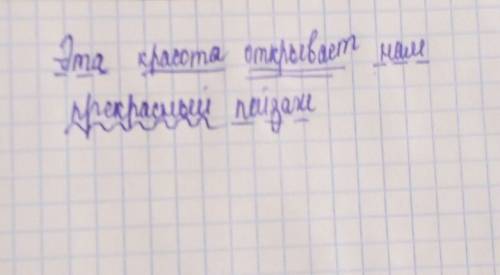 Эта красота открывает нам
прекрасный пейзаж